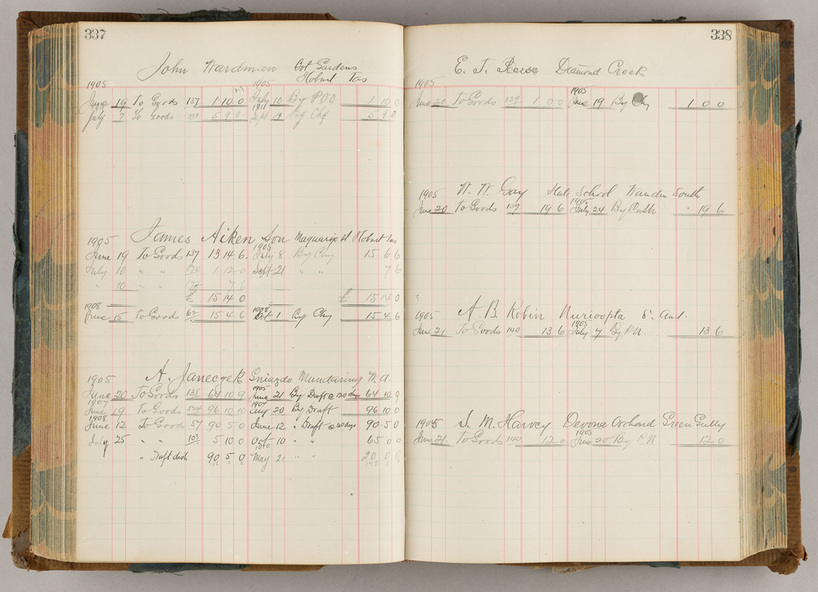 337
John Wardman Bot Gardens
Hobart Tas
1905 1905
June 19 To Goods 137 1 10 0 July 10 By P.O.O 1 10 0
July 7 To Goods 5 9 0 Sept 19 By Chq 5 9 0
1905 James Aiken Son Maquarie St Hobart Tas
June 19 To Goods 137 13 14 6 July 8 By Chq 15 6 6
July 10 " " 1 12 0 Sept 21 " " 7 6
" 10 " " 7 6
£ 15 14 0 £ 15 14 0
1908 1908
June 15 To Goods 62 15 4 6 Oct 1 By Chq 15 4 6
1905 A. Janeczek Gniazdo Mundaring W.A.
June 20 To Goods 138 64 10 9 June 21 By Draft @ 30 dys 64 10 9
1907 1907
June 19 To Goods 96 10 0 Aug 20 By Draft 96 10 0
1908
June 12 To Goods 57 90 5 0 June 12 " Draft @ 30 days 90 5 0
July 25 " " 107 5 10 0 Oct 10 " " 65 0 0
" Draft dish 90 5 0 May 2 " " 20 0 0
338
E. J. Reese Diamond Creek
1905 1905
June 20 To Goods 139 1 0 0 June 19 By Chq 1 0 0
1905 W. W. Gay State School Wandin South
June 20 To Goods 139 19 6 July 24 By Cash 19 6
1905 A. B. Robin Nurioopta S. Aust
June 21 To Goods 140 13 6 July 4 By P.N. 13 6
1905 S. M. Harvey Devona Orchard Green Gully
June 21 To Goods 140 12 0 June 20 By P.N. 12 0